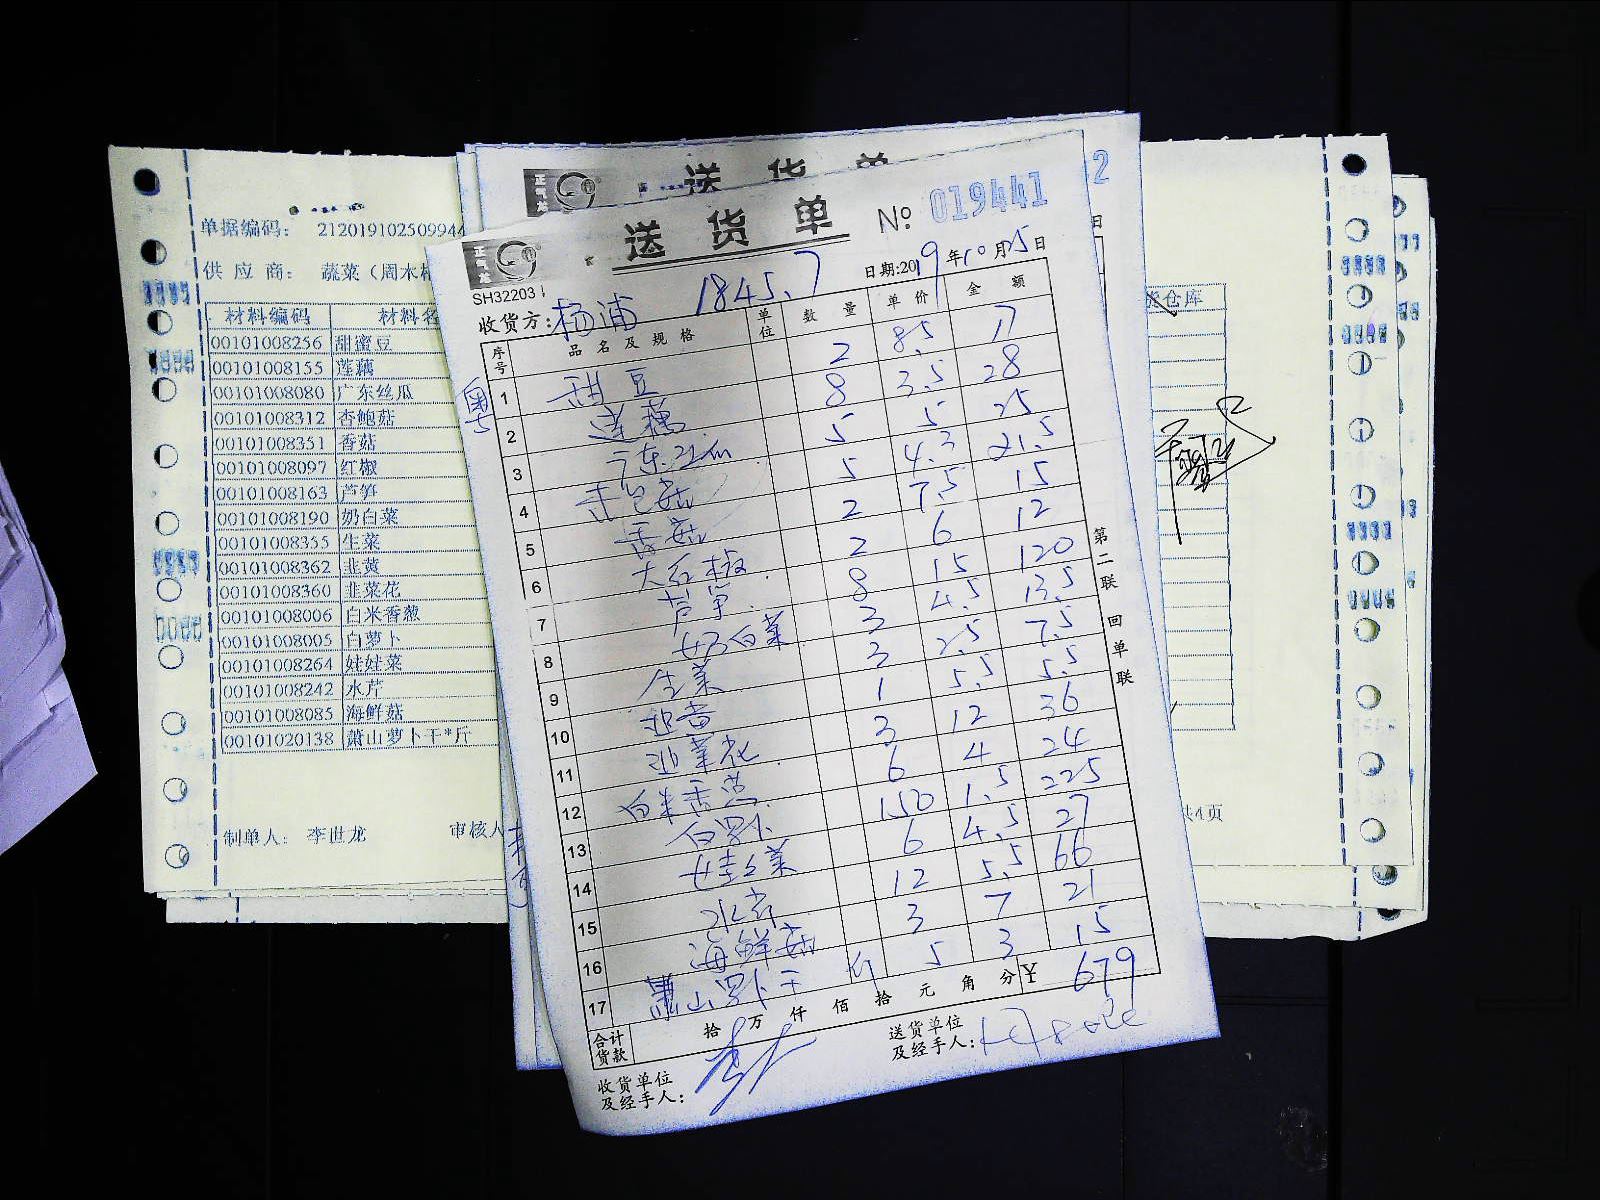 单据编码： 21201910250994
供 应 商： 蔬菜（周水
材料编码 材料名
00101008256 甜蜜豆
00101008155 莲藕
00101008080 广东丝瓜
00101008312 杏鲍菇
00101008351 香菇
00101008097 红椒
00101008163 芦笋
00101008190 奶白菜
00101008355 生菜
00101008362 韭黄
00101008360 韭菜花
00101008006 白米香葱
00101008005 白萝卜
00101008264 娃娃菜
00101008242 水芹
00101008085 海鲜菇
00101020138 萧山萝卜干*斤
制单人： 李世龙 审核人
送 货 单
2
日
送 货 单 № 019441
正气龙
SH32203
日期:2019年10月25日
收货方:杨浦 1845.7
粤
序号 品 名 及 规 格 单位 数 量 单 价 金 额
1 甜豆 2 8.5 17
2 莲藕 8 3.5 28
3 广东丝瓜 5 5 25
4 杏包菇 5 4.3 21.5
5 香菇 2 7.5 15
6 大红椒 2 6 12
7 芦笋 8 15 120
8 奶白菜 3 4.5 13.5
9 生菜 3 2.5 7.5
10 韭黄 1 5.5 5.5
11 韭菜花 3 12 36
12 白米香葱 6 4 24
13 白罗卜 150 1.5 225
14 娃娃菜 6 4.5 27
15 水芹 12 5.5 66
16 海鲜菇 3 7 21
17 萧山罗卜干 斤 5 3 15
合计货款 拾 万 仟 佰 拾 元 角 分 ¥ 679
收货单位及经手人：
送货单位及经手人：
第二联 回单联
仓库
共4页